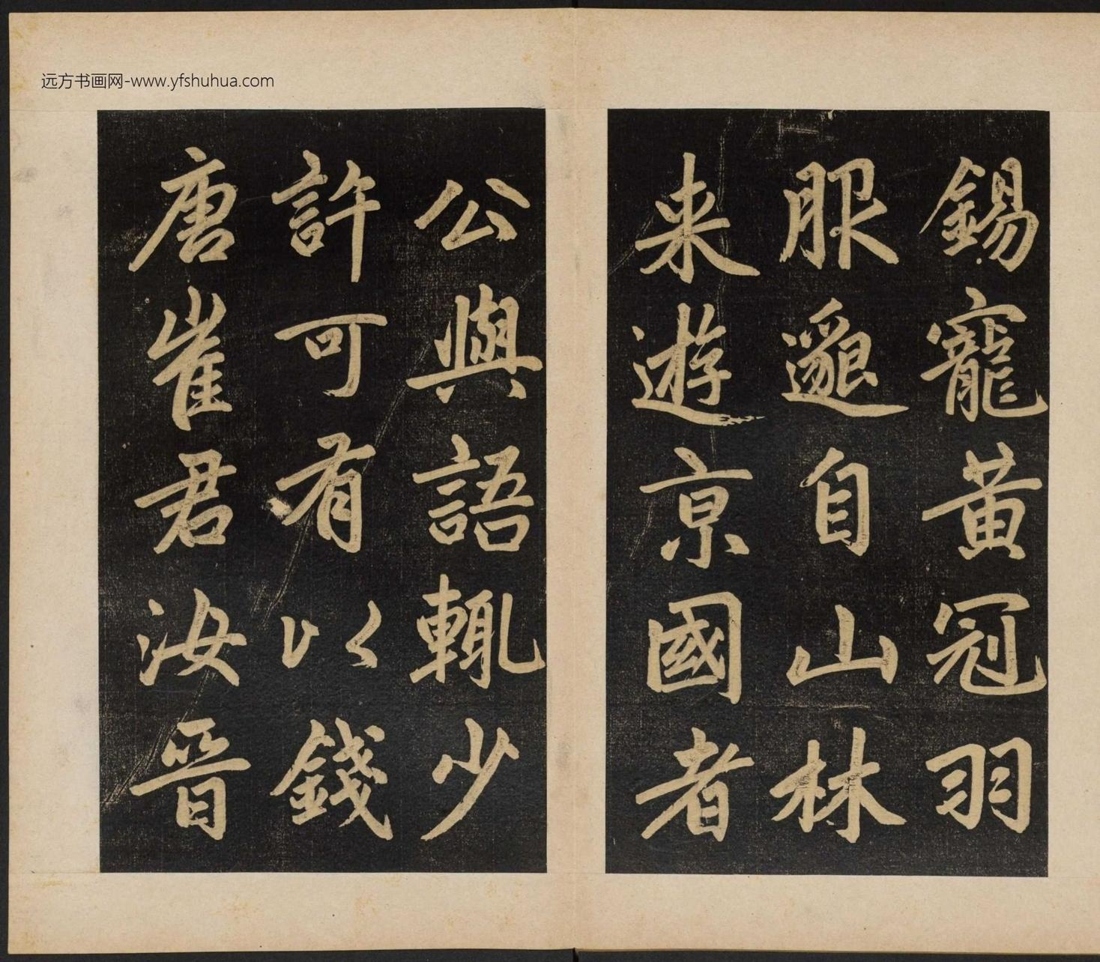 远方书画网-www.yfshuhua.com
錫寵黄冠羽
服邈自山林
来遊京國者
公與語輒少
許可有以錢
唐崔君汝晉